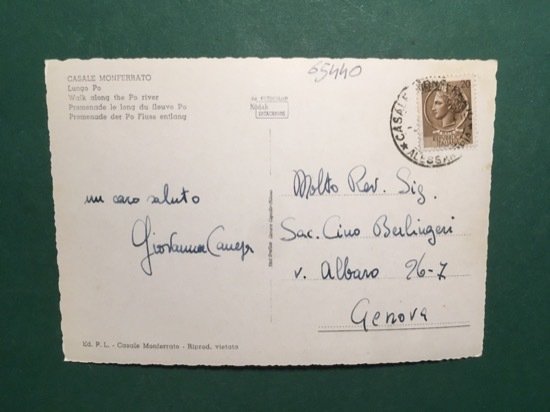 65440
CASALE MONFERRATO
Lungo Po
Walk along the Po river
Promenade le long du fleuve Po
Promenade der Po Fluss entlang
Kodak
20
CASALE MONFERRATO
ALESSANDRIA
un caro saluto
Giovanna
Molto Rev. Sig.
Sac. Cino Berlingeri
v. Albaro 26-7
Genova
103. P. L. - Casale Monferrato - Riprod. vietata